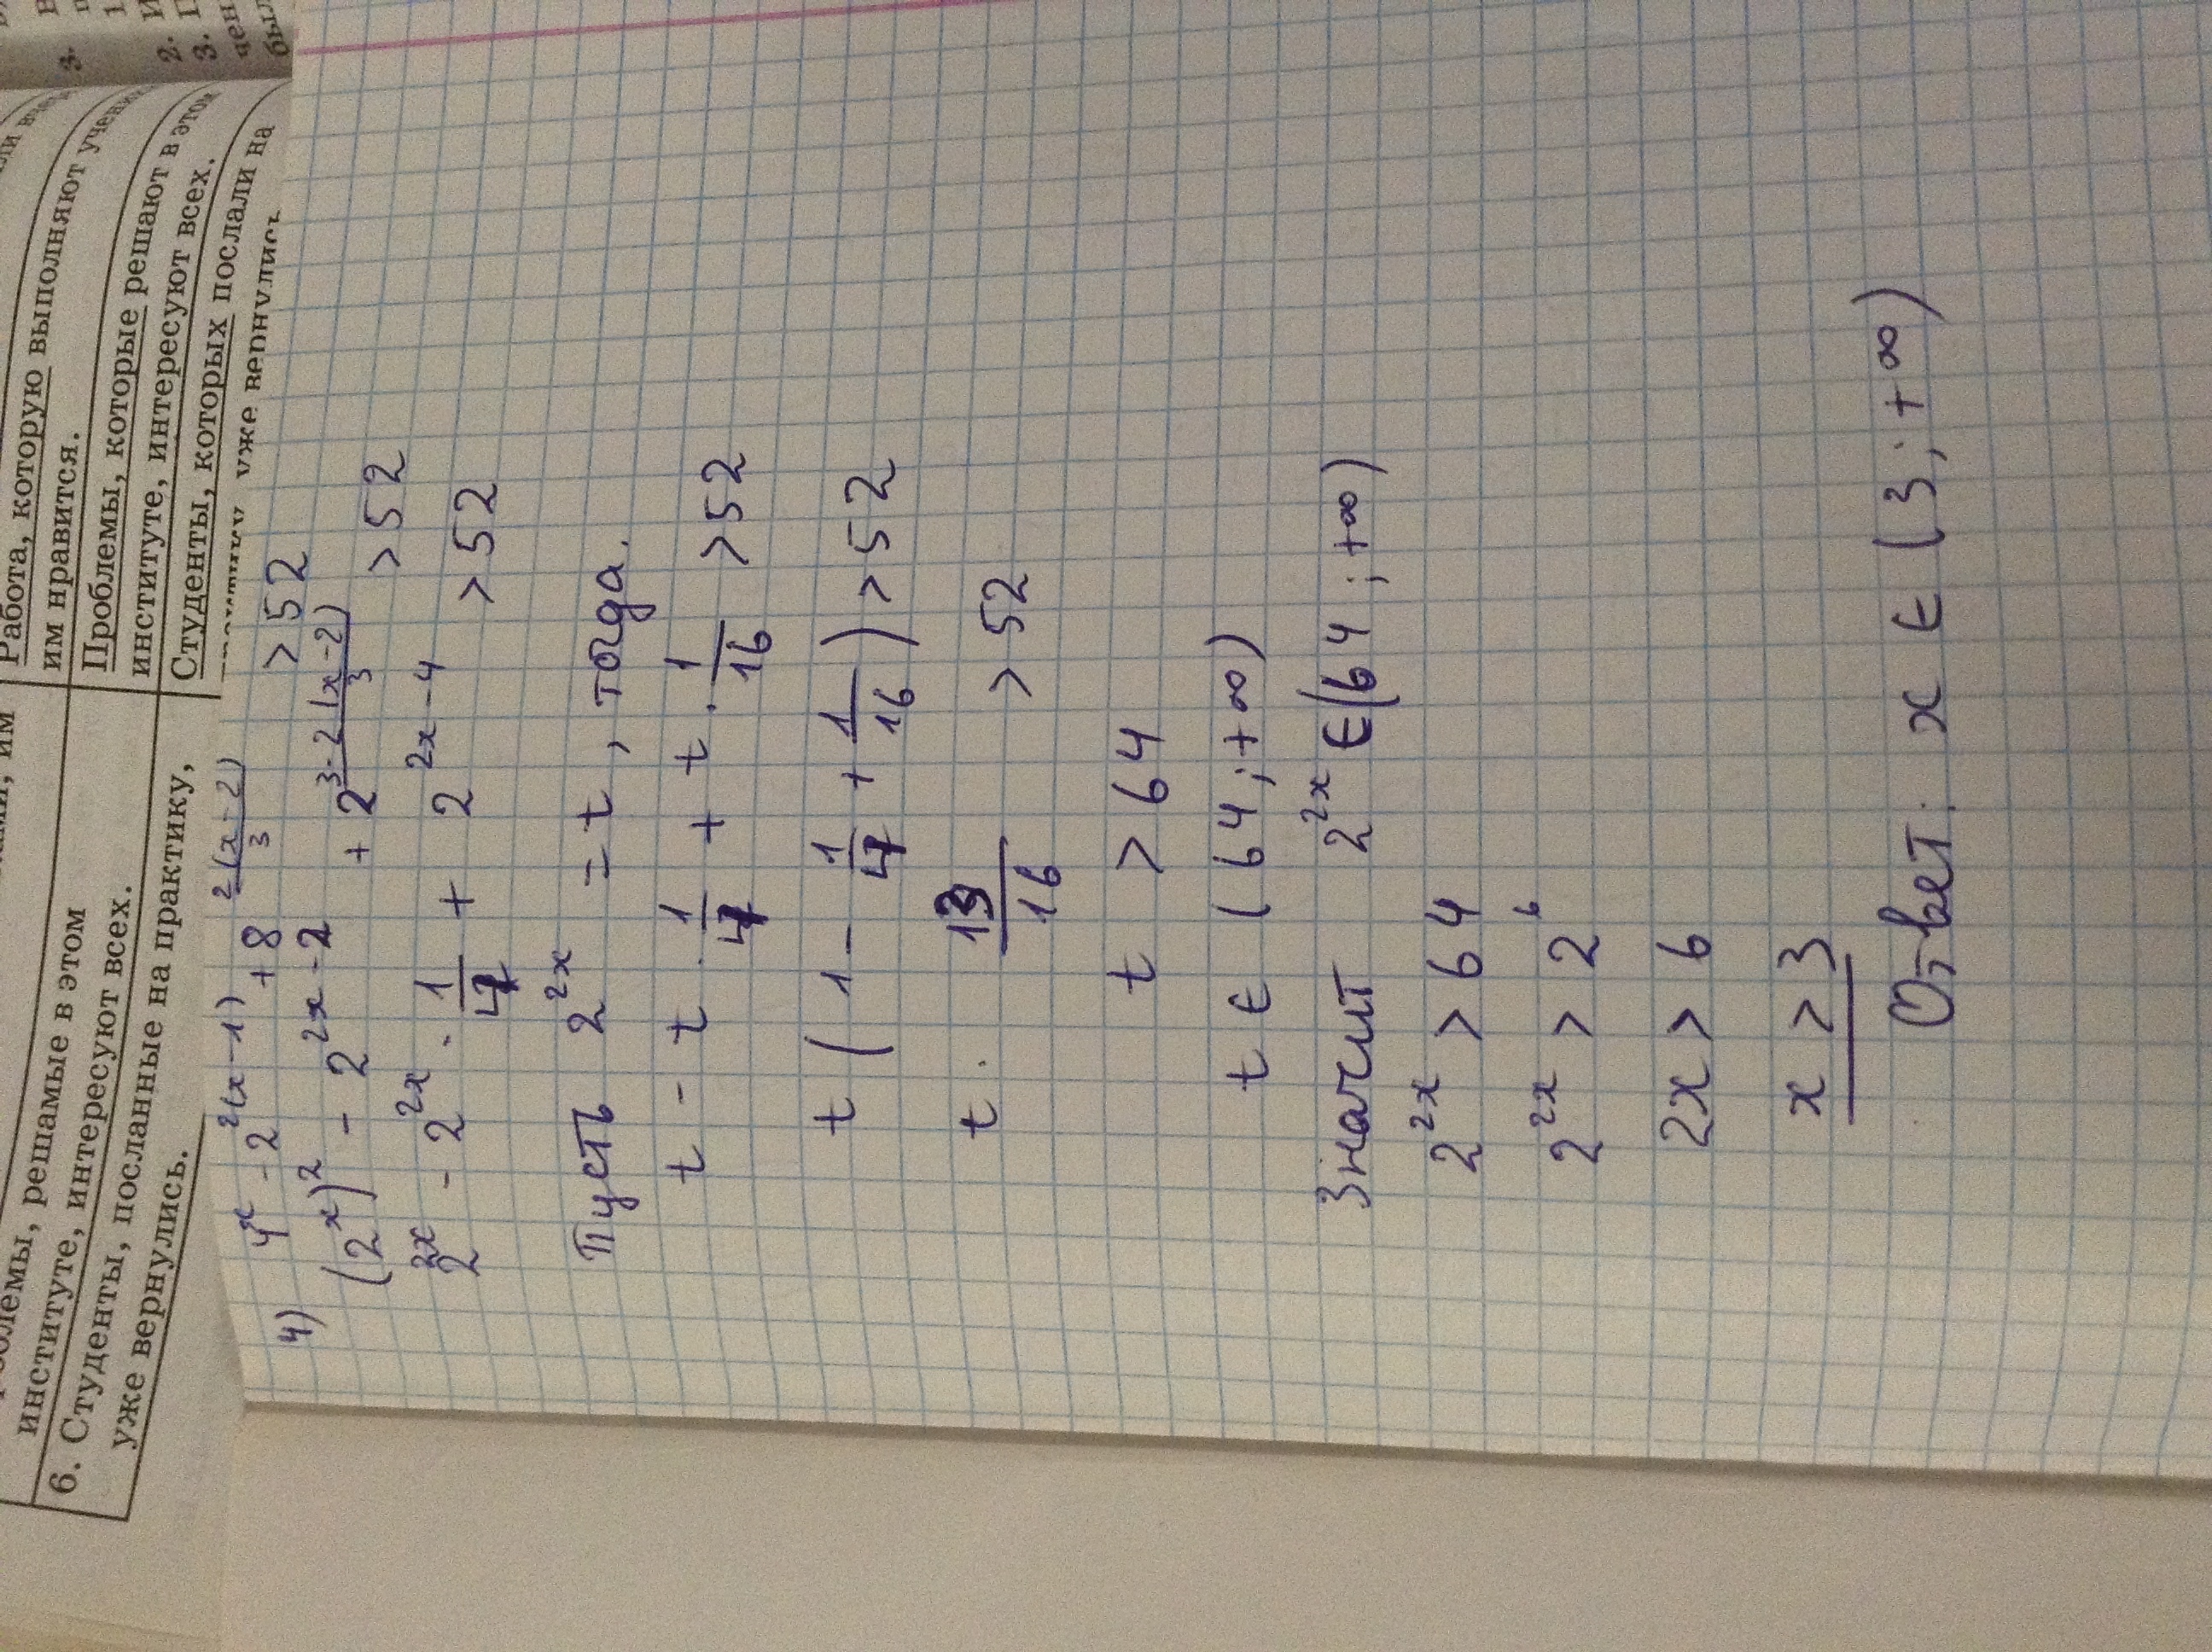 им нравится.
Работа, которую выполняют
Проблемы, которые решают в этом
институте, интересуют всех.
Студенты, которых послали на
уже вернулись
решамые в этом
институте, интересуют всех.
6. Студенты, посланные на практику,
уже вернулись.
3.
2.
3.
4) 4^x - 2^{2(x-1)} + 8^{\frac{2(x-2)}{3}} > 52
(2^x)^2 - 2^{2x-2} + 2^{\frac{3·2(x-2)}{3}} > 52
2^{2x} - 2^{2x} · \frac{1}{4} + 2^{2x-4} > 52
Пусть 2^{2x} = t, тогда.
t - t · \frac{1}{4} + t · \frac{1}{16} > 52
t (1 - \frac{1}{4} + \frac{1}{16}) > 52
t · \frac{13}{16} > 52
t > 64
t ∈ (64; +∞)
Значит 2^{2x} ∈ (64; +∞)
2^{2x} > 64
2^{2x} > 2^6
2x > 6
x > 3
Ответ: x ∈ (3; +∞)